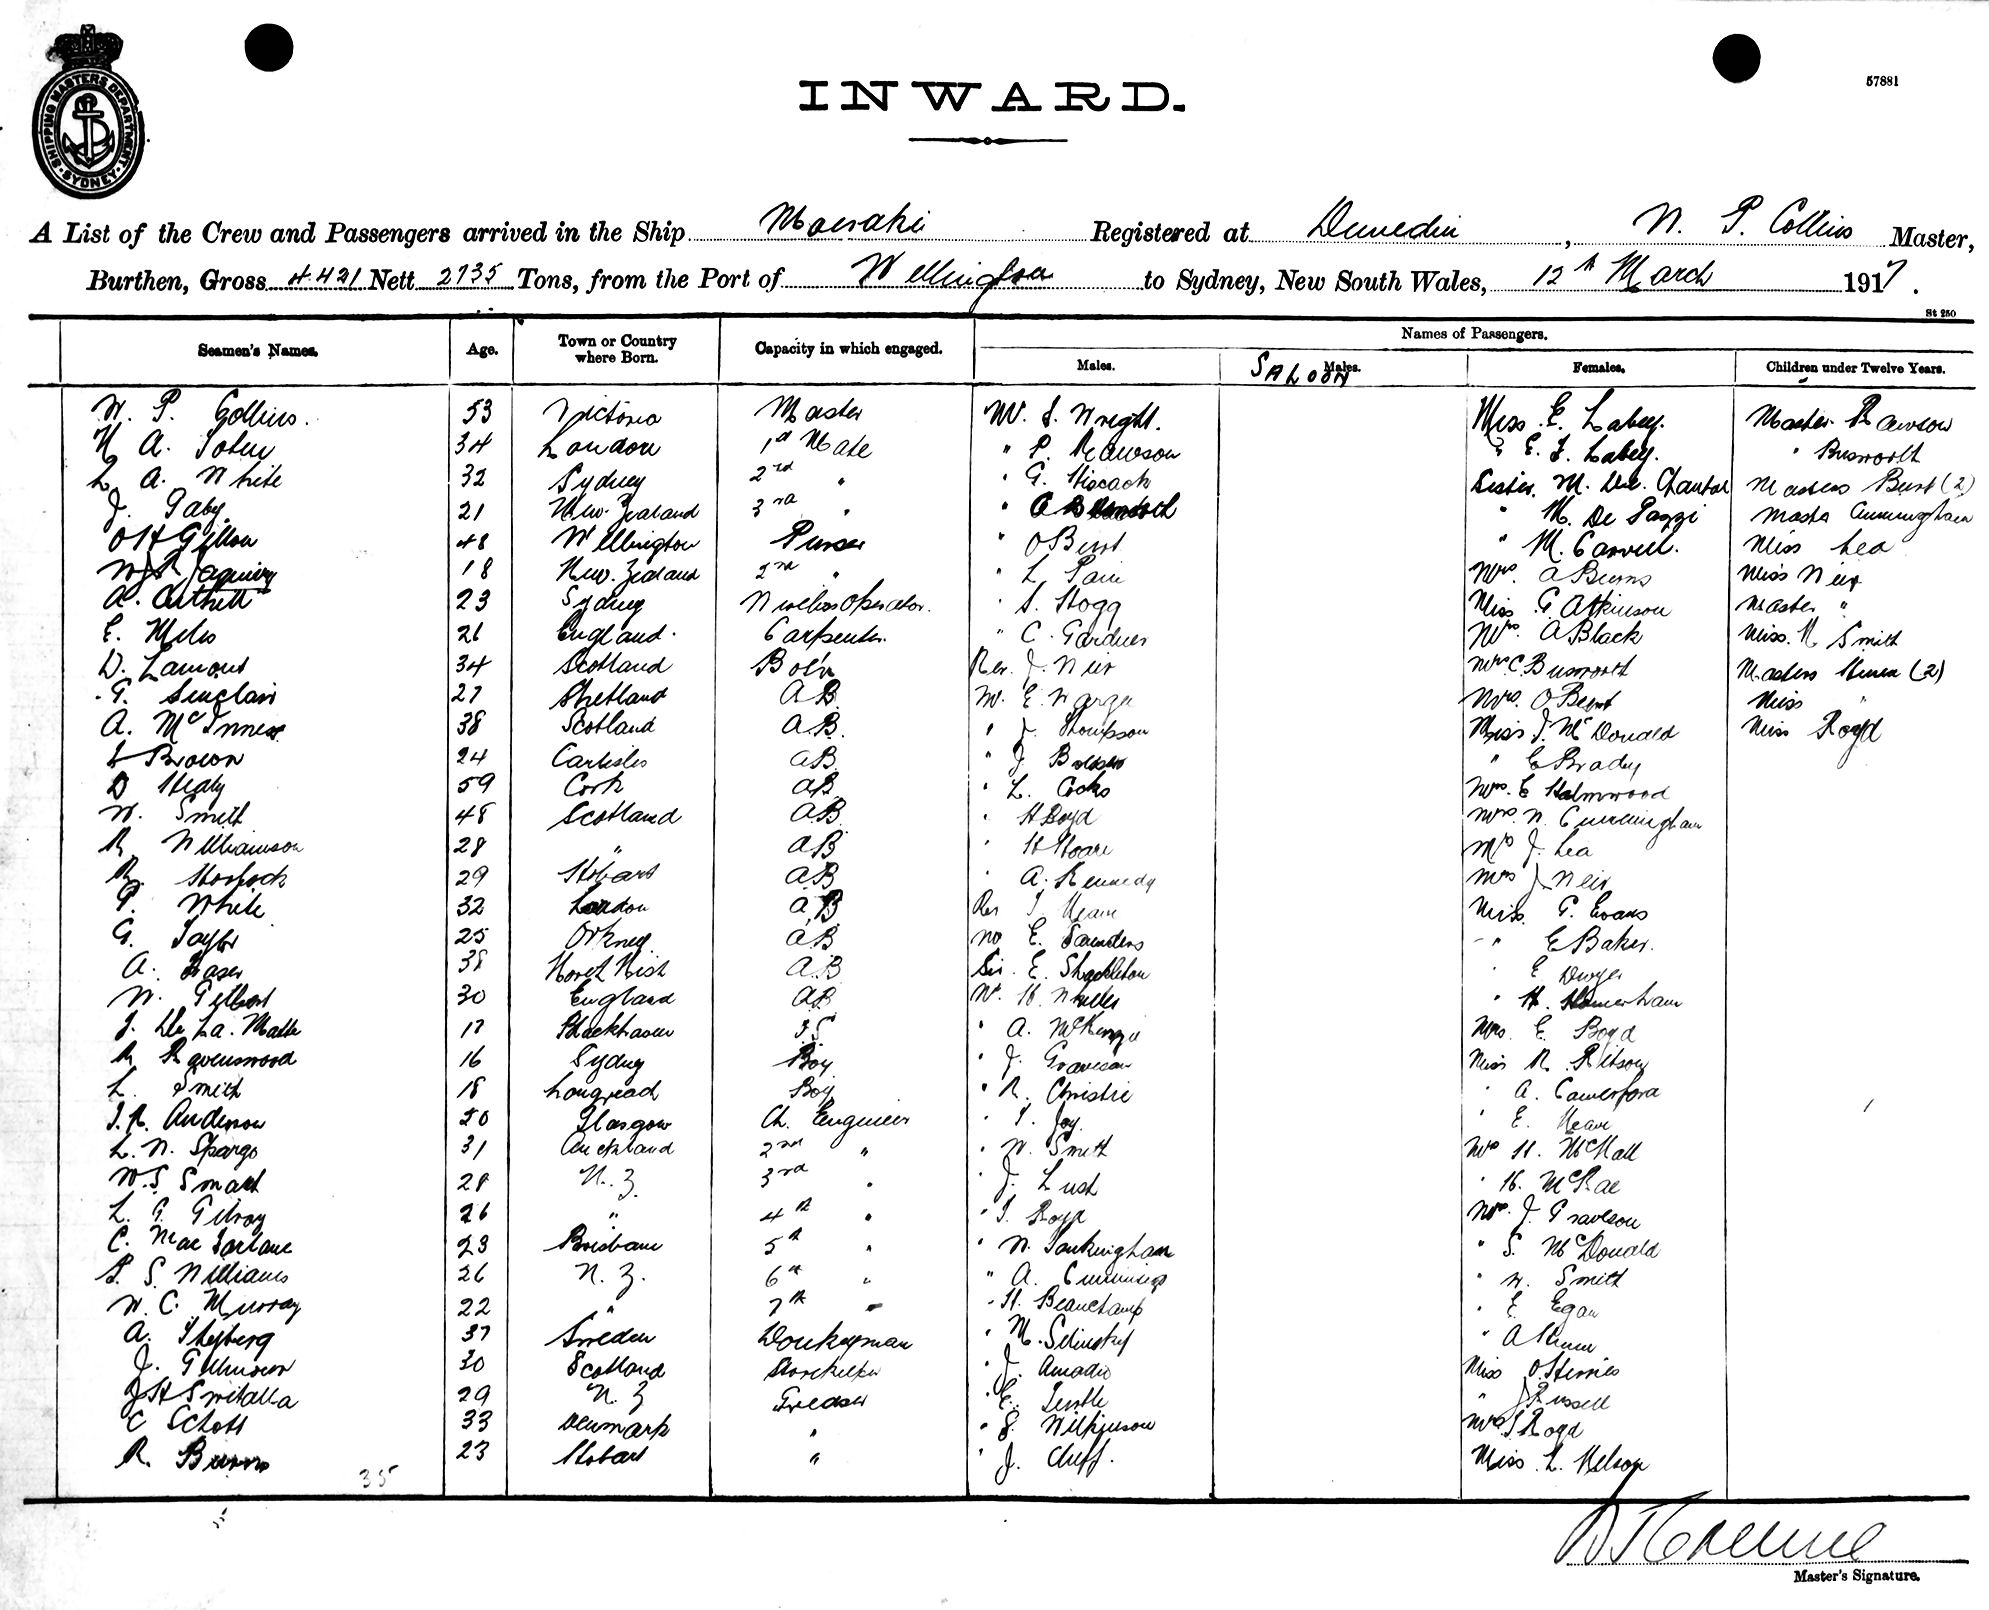 SHIPPING MASTERS DEPARTMENT SYDNEY
57881
INWARD.
A List of the Crew and Passengers arrived in the Ship Moeraki Registered at Dunedin, W. P. Collins Master,
Burthen, Gross 4421 Nett 2735 Tons, from the Port of Wellington to Sydney, New South Wales, 12th March 1917.
St 250
Seamen's Names. Age. Town or Country where Born. Capacity in which engaged. Names of Passengers.
Males. Males. Females. Children under Twelve Years.
SALOON
W. P. Collins. 53 Victoria Master Mr. J. Wright. Miss E. Labey. Master Rawson
A. 34 London 1st Mate " P. Rawson " E. J. Labey. " Busworth
L. A. White 32 Sydney 2nd " " G. Hiscock Sister M. De. Chantal Masters Burt (2)
J. Gaby. 21 New Zealand 3rd " " M. De Pazzi Master Cunningham
O H Gillon 48 Wellington Purser " O Burt " M. Carvell. Miss Lea
18 New. Zealand 2nd " " L. Pain Mrs. A Burns Miss Weir
A. 23 Sydney Wireless Operator. " S. Hogg Miss G. Atkinson Master "
E. Miles 26 England. Carpenter. " C. Gardner Mrs. A Black Miss. N Smith
D. Lamont 34 Scotland Bos'n Rev. J. Weir Mrs C Busworth Masters (2)
G. Sinclair 27 Shetland A B. Mr. E. Mrs. O Burt Miss "
A. McInnes 38 Scotland A B. " J. Thompson Miss J. McDonald Miss Boyd
Brown 24 Carlisle A B. " J. " E Brady
D Healy 59 Cork A B. " L. Cocks Mrs. E Holmwood
W. Smith 48 Scotland A B. " H Boyd Mrs. W Cunningham
R Williamson 28 " A B " H Hoare Mrs J. Lea
R. 29 Hobart A B " A. Kennedy Mrs J Weir
P. White 32 London A B Rev J. Miss. G. Evans
G. Taylor 25 Orkney A B Mr E. Saunders " E Baker.
A. Fraser 38 North Uist A B Sir. E. Shackleton " E Dwyer
W. Gilbert 30 England A B Mr. H. " H.
J. De La. 17 O S " A. McKenzie Mrs E. Boyd
R Ravenswood 16 Sydney Boy. " J. Graveson Miss R. Ritson
L. Smith 18 Longreach Boy " R. Christie " A. Comerford
J. R. Anderson 50 Glasgow Ch. Engineer " T. Joy. " E.
L. W. Spargo 31 Auckland 2nd " " W. Smith Mrs H. McNall
W. S. Smart 28 N. Z. 3rd " " J. Lush " H. McRae
L. G. Gilroy 26 " 4th " " J. Boyd Mrs. J. Graveson
C. Mac Farlane 23 Brisbane 5th " " W. " S. McDonald
P. S. Williams 26 N. Z. 6th " " A. Cummings " W. Smith
W. C. Murray 22 " 7th " " H. Beauchamp " E. Egan
A. 37 Sweden Donkeyman " M. " A
J. Gilmour 30 Scotland Storekeeper " J. Amadio Miss O Herries
29 N. Z Greaser " E. " J Russell
C Schott 33 Denmark " " S. Wilkinson Mrs J Boyd
R. Burns 23 Hobart " " J. Cuff. Miss L. Nelson
35
Master's Signature.